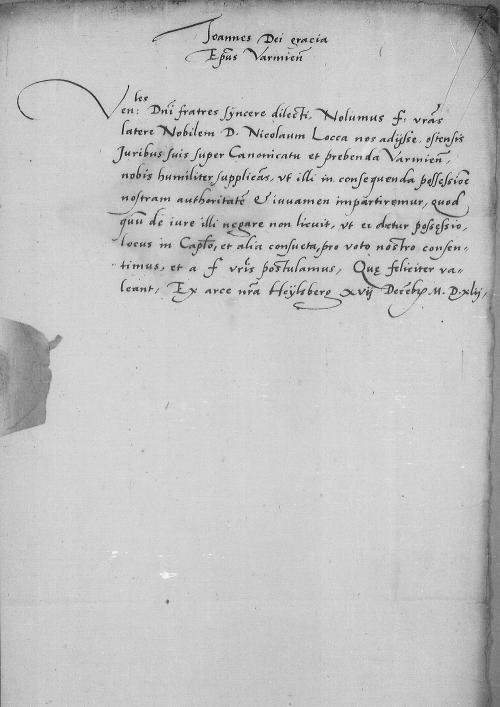 Joannes Dei gracia
Ep̃us Varmieñ
les
Ven: Dñi fratres syncere dilecti, Nolumus f: vrãs
latere Nobilem D. Nicolaum Locca nos adijsse, ostensis
Juribus suis super Canonicatu et prebenda Varmieñ,
nobis humiliter supplicãs, vt illi in consequenda possessiõe
nostram authoritatẽ & iuuamen impartiremur, quod
quũ de iure illi negare non licuit, vt ei detur possessio,
locus in Capl̃o, et alia consueta, pro voto nostro consen-
timus, et a f vrĩs postulamus, Quę feliciter va-
leant, Ex arce nrã Heÿlsberg xvij Decẽbr M. D. xlij,